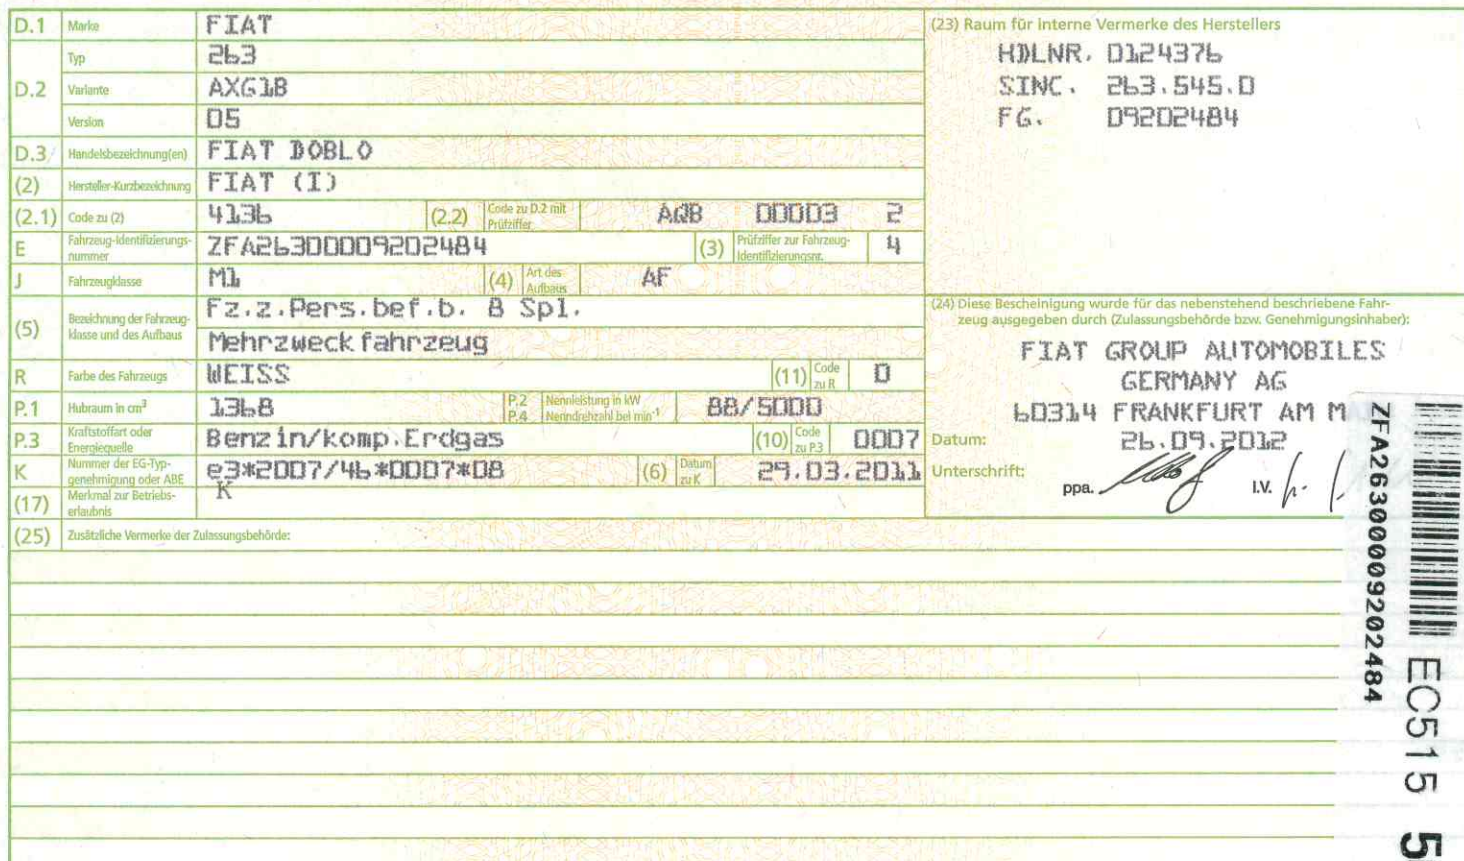 D.1 Marke FIAT
D.2 Typ 263
Variante AXG1B
Version 05
D.3 Handelsbezeichnung(en) FIAT DOBLO
(2) Hersteller-Kurzbezeichnung FIAT (I)
(2.1) Code zu (2) 4136 (2.2) Code zu D.2 mit Prüfziffer AQB 00003 2
E Fahrzeug-Identifizierungs-nummer ZFA26300009202484 (3) Prüfziffer zur Fahrzeug-Identifizierungsnr. 4
J Fahrzeugklasse M1 (4) Art des Aufbaus AF
(5) Bezeichnung der Fahrzeug-klasse und des Aufbaus Fz.z.Pers.bef.b. 8 Spl.
Mehrzweckfahrzeug
R Farbe des Fahrzeugs WEISS (11) Code zu R 0
P.1 Hubraum in cm³ 1368 P.2 P.4 Nennleistung in kW Nenndrehzahl bei min⁻¹ 88/5000
P.3 Kraftstoffart oder Energiequelle Benzin/komp.Erdgas (10) Code zu P.3 0007
K Nummer der EG-Typ-genehmigung oder ABE e3*2007/46*0007*08 (6) Datum zu K 29.03.2011
(17) Merkmal zur Betriebs-erlaubnis K
(25) Zusätzliche Vermerke der Zulassungsbehörde:
(23) Raum für interne Vermerke des Herstellers
HDLNR. 0124376
SINC. 263.545.0
FG. 09202484
(24) Diese Bescheinigung wurde für das nebenstehend beschriebene Fahr-
zeug ausgegeben durch (Zulassungsbehörde bzw. Genehmigungsinhaber):
FIAT GROUP AUTOMOBILES
GERMANY AG
60314 FRANKFURT AM M
Datum: 26.09.2012
Unterschrift: ppa. I.V.
ZFA26300009202484
EC515 5 5